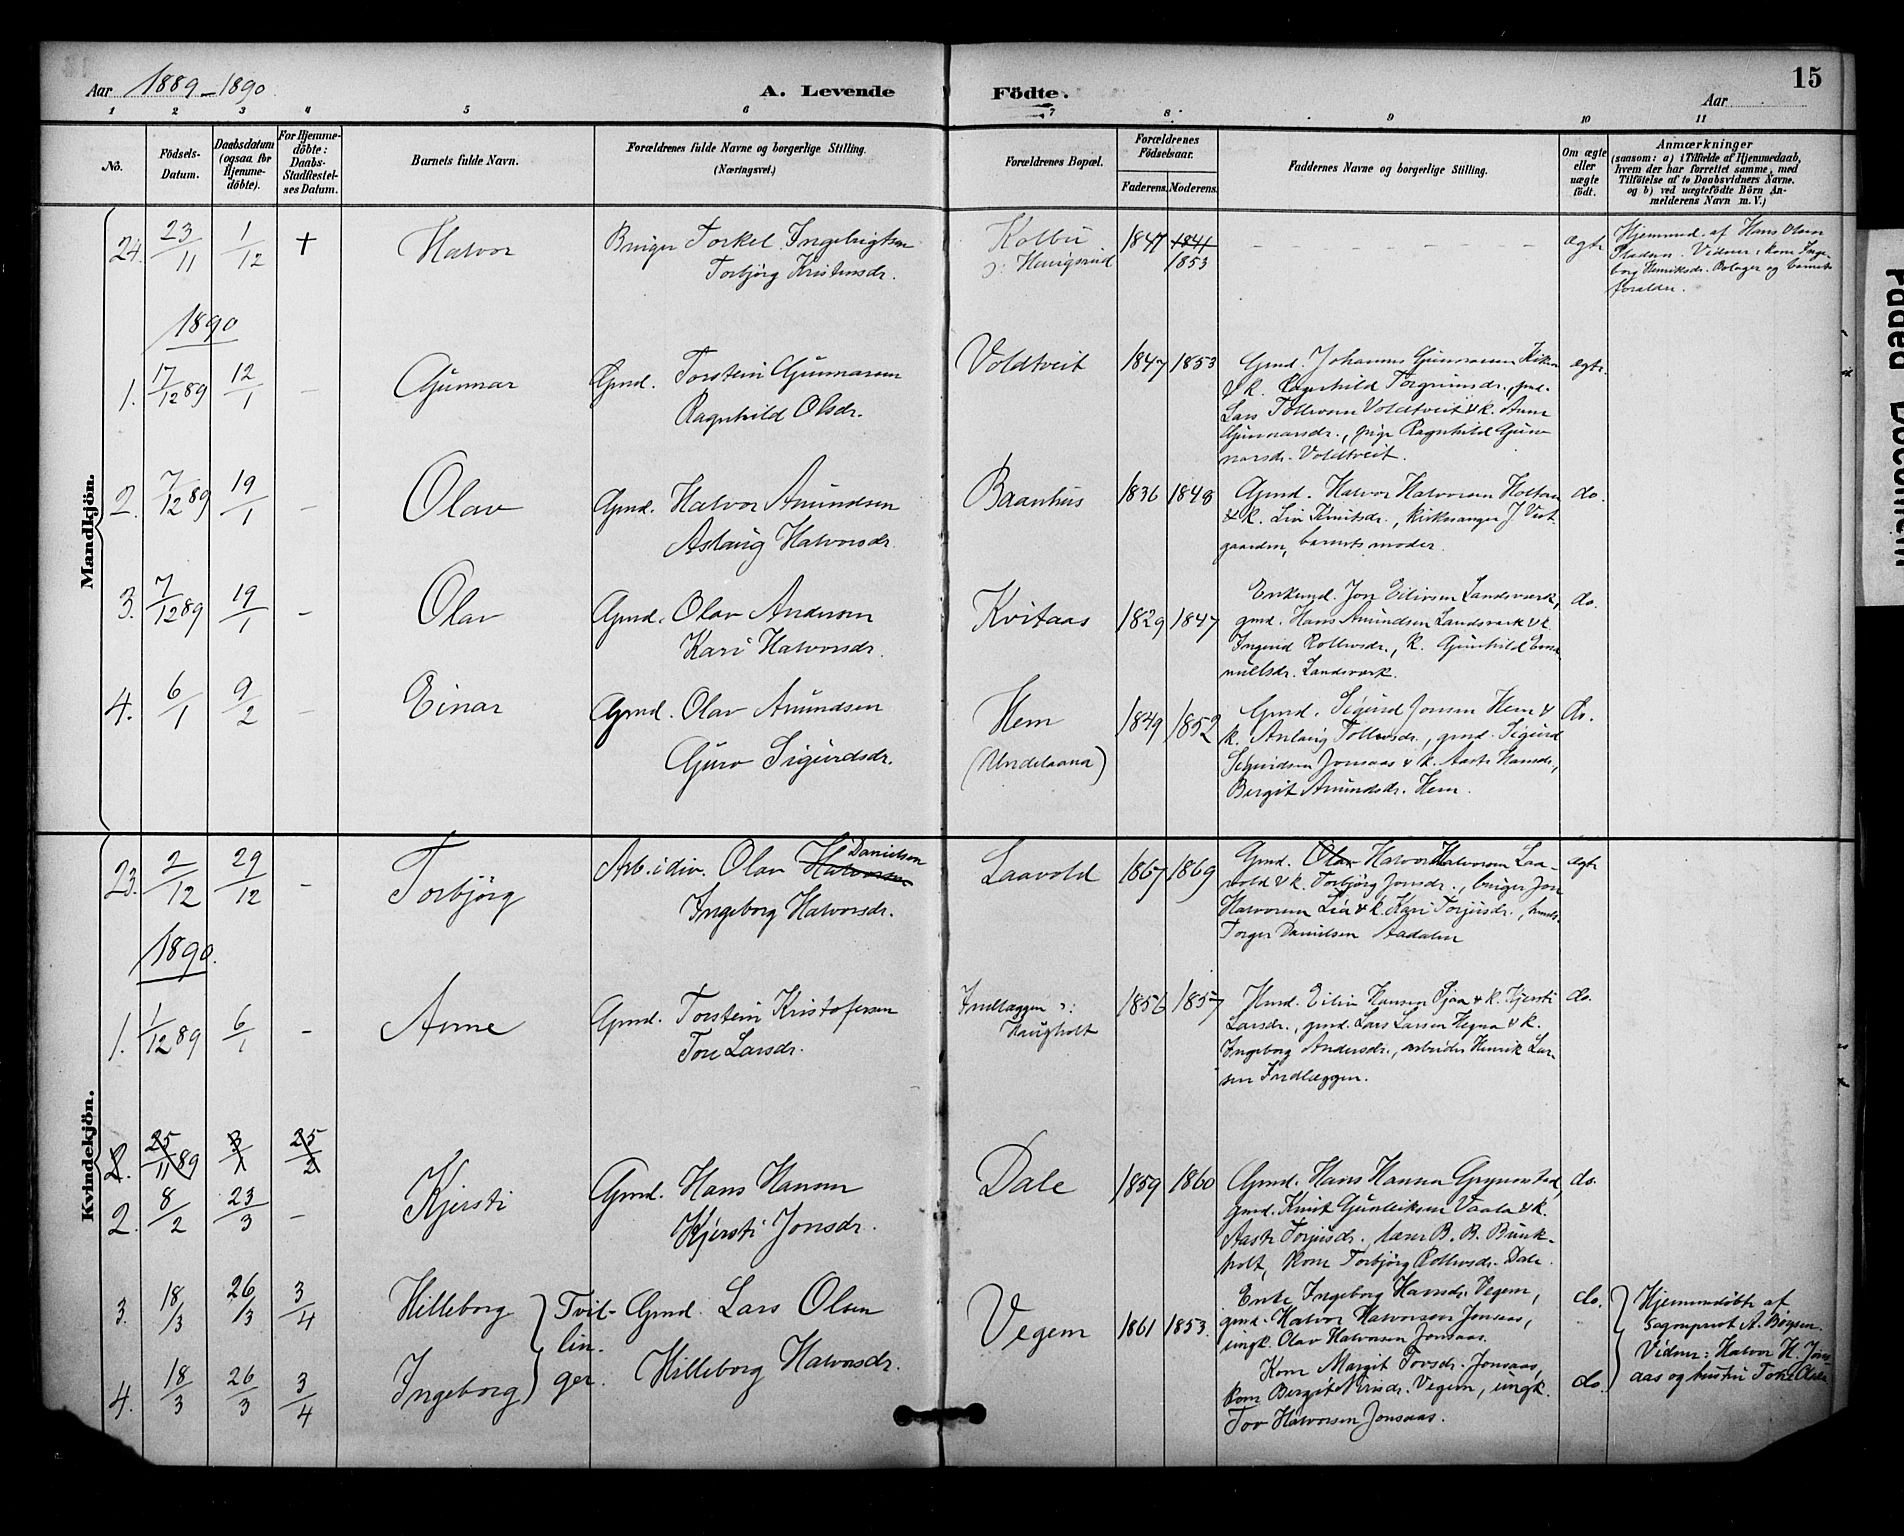 Aar 1889-1890
A. Levende
Födte.
Aar
15
1 2 3 4 5 6 7 8 9 10 11
Nô.
Födsels-Datum.
Daabsdatum (ogsaa for Hjemmedöbte).
For Hjemmedöbte: Daabs-Stadfæstelses Datum.
Barnets fulde Navn.
Forældrenes fulde Navne og borgerlige Stilling. (Næringsvei.)
Forældrenes Bopæl.
Forældrenes Födselsaar.
Faderens. Moderens.
Faddernes Navne og borgerlige Stilling.
Om ægte eller uægte födt.
Anmærkninger
(saasom: a) i Tilfælde af Hjemmedaab, hvem der har forrettet samme, med Tilföielse af to Daabsvidners Navne. og b) ved uægtefödte Börn Anmelderens Navn m. V.)
Mandkjön.
24. 23/11 1/12 + Halvor
Bruger Torkel Ingebrigtsen
Torbjörg Kristensdr.
Kolbu
1847 1841
1853
ægte
Hjemmed. af Hans Olsen
Vidner: kone Inge-
borg Henriksdr. Bolager og barnets
forældre.
1890
1. 17/12 89 12/1 – Gunnar
Gmd. Torstein Gunnarsen
Ragnhild Olsdr.
Voldtveit
1847 1853
Gmd. Johannes Gunnarsen
& k. Ragnhild Torgrimsdr., gmd.
Lars Tollevsen Voldtveit & k. Anne
Gunnarsdr., pige Ragnhild Gun-
narsdr. Voldtveit.
ægte.
2. 7/12 89 19/1 – Olav
Gmd. Halvor Amundsen
Aslaug Halvorsdr.
Baanhus
1836 1848
Gmd. Halvor Halvorsen Holtan
& k. Liv Knutsdr., kirkesanger J Vest-
gaarden, barnets moder.
do.
3. 7/12 89 19/1 – Olav
Gmd. Olav Andersen
Kari Halvorsdr.
Kvitaas
1829 1847
Enkemd. Jon Eilivsen Landsværk,
gmd. Hans Amundsen Landsværk & k.
Ingerid Rollevsdr., k. Gunhild Ema-
nuelsdr. Landsværk.
do.
4. 6/1 9/2 – Einar
Gmd. Olav Amundsen
Guro Sigurdsdr.
Hem
(Undelaana)
1849 1852
Gmd. Sigurd Jonsen Hem &
k. Aslaug Tollevsdr., gmd. Sigurd
Sigurdsen Jonsaas & k. Aaste Hansdr.,
Bergit Amundsdr. Hem.
do.
Kvindekjön.
23. 2/12 29/12 – Torbjörg
Arb. i div. Olav Halvorsen Danielsen
Ingeborg Halvorsdr.
Laavold
1867 1869
Gmd. Olav Halvor Halvorsen Laa-
vold & k. Torbjörg Jonsdr., bruger Jon
Halvorsen Lia & k. Kari Torjusdr.,
Torger Danielsen Aadalen
ægte
1890.
1. 1/12 89 6/1 – Anne
Gmd. Torstein Kristofersen
Tone Larsdr.
Indlæggen ɔ:
Haugholt
1856 1857
Hmd. Eiliv Hansen Sjaa & k. Kjersti
Larsdr., gmd. Lars Larsen Hegna & k.
Ingeborg Andersdr., arbeider Henrik Lar-
sen Indlæggen.
do.
2. 25/11 89 3/1 25/2
2. 8/2 23/3 – Kjersti
Gmd. Hans Hansen
Kjersti Jonsdr.
Dale
1859 1860
Gmd. Hans Hansen Grynestad,
gmd. Knut Gunleiksen Vaala & k.
Aaste Torjusdr., lærer B. B. Bunk-
holt, kone Torbjörg Rollevsdr. Dale.
do.
3. 18/3 26/3 3/4 Hilleborg
4. 18/3 26/3 3/4 Ingeborg
Tvil-
lin-
ger.
Gmd. Lars Olsen
Hilleborg Halvorsdr.
Vegem
1861 1853.
Enke Ingeborg Hansdr. Vegem,
gmd. Halvor Halvorsen Jonsaas,
ungk. Olav Halvorsen Jonsaas.
Kone Margit Tovsdr. Jonsaas,
kone Bergit Vegem, ungk.
Tov Halvorsen Jonsaas.
do.
do.
Hjemmedöbte af
Sogneprest A. Böysen.
Vidner: Halvor H. Jons-
aas og hustru Tone Olsdr.